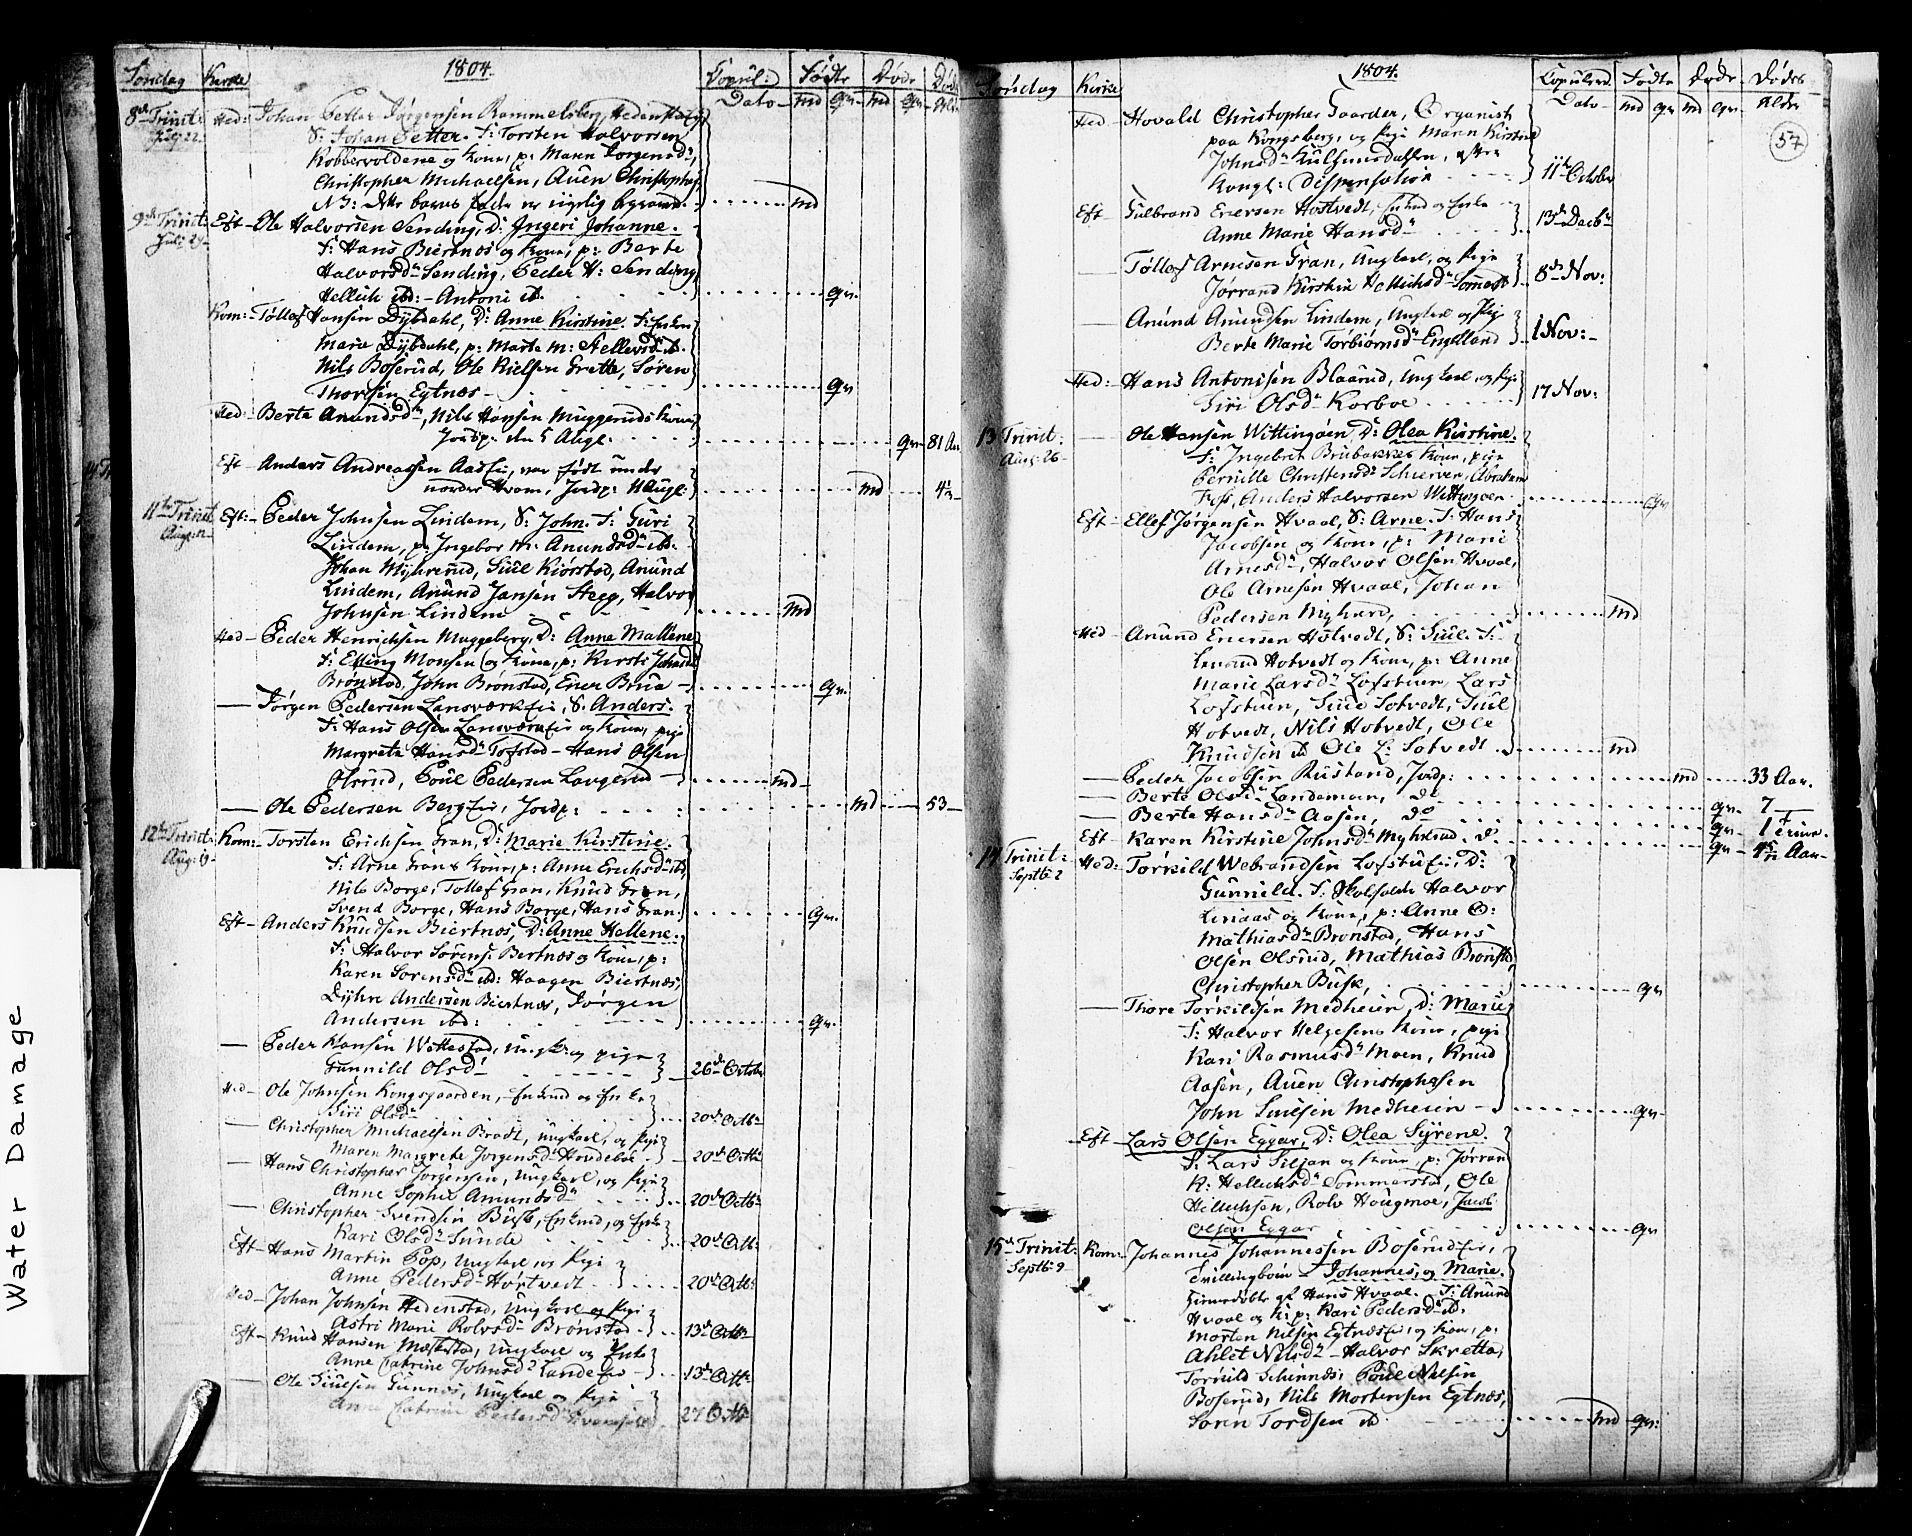 Water Damage
1804.
Søndag Kirke Copul: Fødte Døde Døds
Dato md qv md qv Alder
8de Trinit: Hed: Johan Petter Jørgensen Rammelsberg, Hedenstad
July 22. S: Johan Petter. F: Torsten Halvorsen
Kobbervoldene og kone, p: Maren Jørgensd:
Christopher Michaelsen, Auen Christophers
NB: dette barns fader er rigtig
md
9de Trinit: Eft- Ole Halvorsen Sending, D: Ingeri Johanne.
Juli 29- F: Hans Biertnæs og kone, p: Berte
Halvorsd: Sending, Peder H: Sending
Hellich ibd:- Antoni ib. qv.
Kom:- Tollef Hansen Dybdahl, D: Anne Kirstine. F: Enken
Marie Dybdahl, p: Marte M: Ib.
Nils Boserud, Ole Nielsen Grette, Søren
Thorsen Egtnæs- qv
Hed:- Berte Anundsd:, Nils Hansen Muggeruds kone,
Jordp: den 5 Aug: qv- 81 Aar
Eft- Anders Andreassen Aasei, var født under
Hvam, Jordp: 11 Aug: md
11te Trinit Eft:- Peder Johnsen Lindem, S: John. F: Guri
Aug: 12- Lindem, p: Ingebor M: Anundsd: ibd.
Johan Myhrerud, Siul Kiørstad, Anund
Lindem, Anund Jansen Stegg, Halvor
Johnsen Lindem md
Hed- Peder Henrichsen Muggeberg, D: Anne Mallene
F: Elling Monsen og kone, p: Kirsti Johansd
Brønstad, John Brønstad, Ener Brua - qv.
— Jørgen Pedersen Lansværkei, S: Anders.
F: Hans Olsen Lansværkei og kone, pige
Margrete Hansd: Tofstad - Hans Olsen
Olsrud, Poul Pedersen Laugerud - md-
— Ole Pedersen Bergei, Jordp: md 53-
12te Trinit: Kom:- Torsten Erichsen Gran, D: Marie Kirstine.
Aug: 19 F: Arne Grans kone, p: Anne Erichsd: ib.
Nils Borge, Tollef Gran, Knud Gran,
Svend Borge, Hans Borge, Hans Gran. qv.
Eft- Anders Knudsen Biertnæs, D: Anne Hellene.
F: Halvor Sørens: Bertnæs og kone, p:
Karen Sørensd: ibd: Haagen Biertnæs,
Dyhre Andersen Biertnæs, Jørgen
Andersen ibd: qv.
— Peder Hansen Wettestad, Ungk: og pige
Gunnild Olsd: 26de Octob
Hed- Ole Johnsen Kongsgaarden, Enkemd og Enke
Siri Olsd: 20de Octb:
— Christopher Michaelsen Bradt, Ungkarl, og Pige
Maren Margrete Jorgensd: Hovdeboe 20de Octb:
— Hans Christopher Jorgensen, Ungkarl, og Pige
Anne Sophie Amundsd: 20de Octb:
— Christopher Svendsen Busk, Enkemd, og Enke
Kari Olsd: Sunde 20de Octb:
Eft- Hans Martin Pop, Ungkarl, og Pige
Anne Pedersd: Hørtvedt 20de Octb:
Hed- Johan Johnsen Hedenstad, Ungkarl og Pige
Astri Marie Rolvsd: Brønstad 13de Octb:
Eft- Knud Hansen Ungkarl og Enke
Anne Catrine Johnsd: Landei 13de Octb:
— Ole Siulsen Gunnes, Ungkarl og Pige
Anne Catrine Pedersd: 27 Octb
1804.
57
Søndag Kirke Copulered Fødte Døde Dødes
Dato md qv md qv Alder
Hed- Hovald Christopher Gaarder, Organist
paa Kongsberg, og Pige Maren Kirstine
Johnsd: efter
Kongl: Dispensation 11te October
Eft- Gulbrand Enersen Hostvedt, Enkemd og Enke
Anne Marie Hansd: 13de Decb:
— Tøllef Arnesen Gran, Ungkarl, og Pige
Jørrand Kirstine Hellichsd: 8de Nov:
— Anund Anundsen Lindem, Ungkarl og Pige
Berte Marie Torbiørnsd: Engelland 1 Nov:
Hed: Hans Antonisen Blaarud, Ungkarl, og Pige
Siri Olsd: Korboe 17 Nov:
13 Trinit: — Ole Hansen Wittingøen, D: Olea Kirstine.
Aug: 26- F: Ingebrit Brubakkes kone, pige
Pernille Christensd: Schierven, Abraham
Fos, Anders Halvorsen Wittingøen qv
Eft- Ellef Jørgensen Hvaal, S: Arne. F: Hans
Jacobsen og kone, p: Marie
Arnesd:, Halvor Olsen Hvaal,
Ole Arnesen Hvaal, Johan
Pedersen Myhrerud, md
Hed- Anund Enersen Hotvedt, S: Siul. F:
Hotvedt og kone, p: Anne
Marie Larsd: Lofstuen, Lars
Lofstuen, Siul Sotvedt, Siul
Hotvedt, Nils Hotvedt, Ole
Knudsen ib Ole L: Sotvedt. md
— Peder Jacobsen Rustand, Jordp: md 33 Aar.
— Berte Olsd: Landeman, do qv- 7 —
— Berte Hansd: Aasen, do qv- 1
Eft- Karen Kirstine Johnsd: Myhrerud. d. qv- Aar-
14 Trinit: Hed: Torkild Webrandsen Lofstuei, D:
Septb: 2 Gunnild. F: Halvor
Linaas og kone, p: Anne O:
Mathiasd: Brønstad, Hans
Olsen Olsrud, Mathias Brønsted
Christopher Busk, qv
— Thore Torkildsen Medheien, D: Marie,
F: Halvor Helgesens kone, pige
Kari Rasmusd: Moen, Knud
Aasen, Auen Christophersen
John Siulsen Medheien - qv-
Eft- Lars Olsen Eggar, D: Olea Syrene.
F: Lars Siljan og kone, p: Jørrand
K: Hellichsd: Sommerstad, Ole
Hellichsen, Rolv Hougmoe, Jacob
Olsen Eggar qv
15de Trinit: Kom:- Johannes Johannessen Boserudei,
Septb: 9- Tvillingbørn - Johannes, og Marie.
Hiemedøbte af Hans Hvaal. F: Anund
Hvaal og K: p: Kari Pedersd: ib.
Morten Nilsen Egtnæsei, og kone, p:
Ahlet Nilsd: - Halvor Skretta,
Tornild Schinnes, Poul Nielsen
Boserud, Nils Mortensen Egtnæs,
Sørn Tordsen ib md qv: